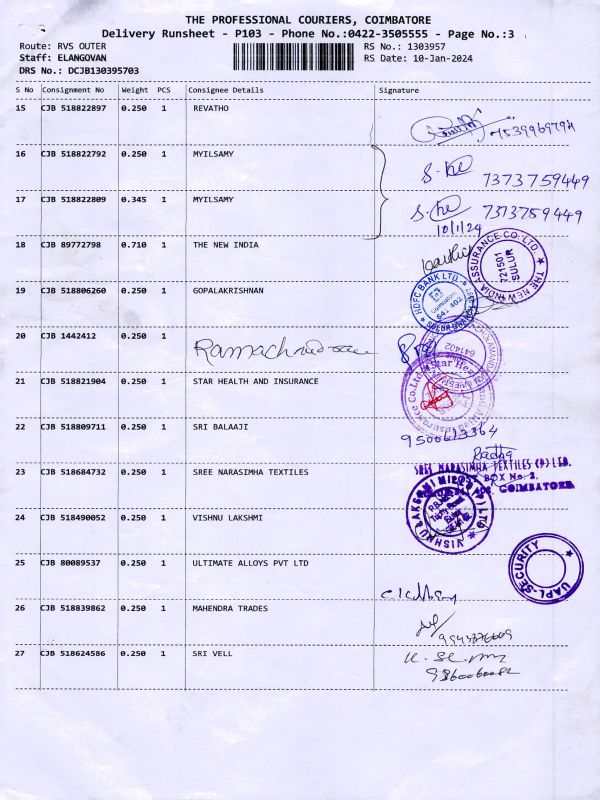 THE PROFESSIONAL COURIERS, COIMBATORE
Delivery Runsheet - P103 - Phone No.:0422-3505555 - Page No.:3
Route: RVS OUTER RS No.: 1303957
Staff: ELANGOVAN RS Date: 10-Jan-2024
DRS No.: DCJB130395703
S No Consignment No Weight PCS Consignee Details Signature
15 CJB 518822897 0.250 1 REVATHO
16 CJB 518822792 0.250 1 MYILSAMY
7373759449
17 CJB 518822809 0.345 1 MYILSAMY
7373759449
10/1/24
18 CJB 89772798 0.710 1 THE NEW INDIA
THE NEW INDIA ASSURANCE CO. LTD
721501
SULUR
19 CJB 518806260 0.250 1 GOPALAKRISHNAN
HDFC BANK LTD
Coimbatore
641 402
20 CJB 1442412 0.250 1 Ramachandran
641402
21 CJB 518821904 0.250 1 STAR HEALTH AND INSURANCE
Star Health
22 CJB 518809711 0.250 1 SRI BALAAJI
9500613364
Radha
23 CJB 518684732 0.250 1 SREE NARASIMHA TEXTILES
SREE NARASIMHA TEXTILES (P) LTD.
BOX No. 2,
COIMBATORE
24 CJB 518490052 0.250 1 VISHNU LAKSHMI
VISHNU LAKSHMI MILLS (P) LTD
25 CJB 80089537 0.250 1 ULTIMATE ALLOYS PVT LTD
UAPL-SECURITY
26 CJB 518839862 0.250 1 MAHENDRA TRADES
27 CJB 518624586 0.250 1 SRI VELL